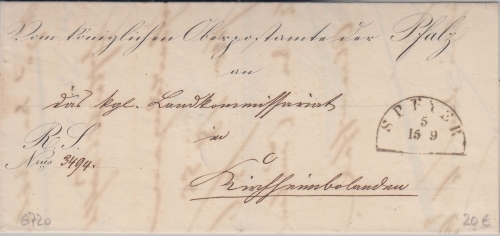 Vom königlichen Oberpostamte der Pfalz
an
das kgl. Landkommissariat
in
Kirchheimbolanden
R. S.
Nrus 3494.
SPEYER
5
15 9
6720
20 €